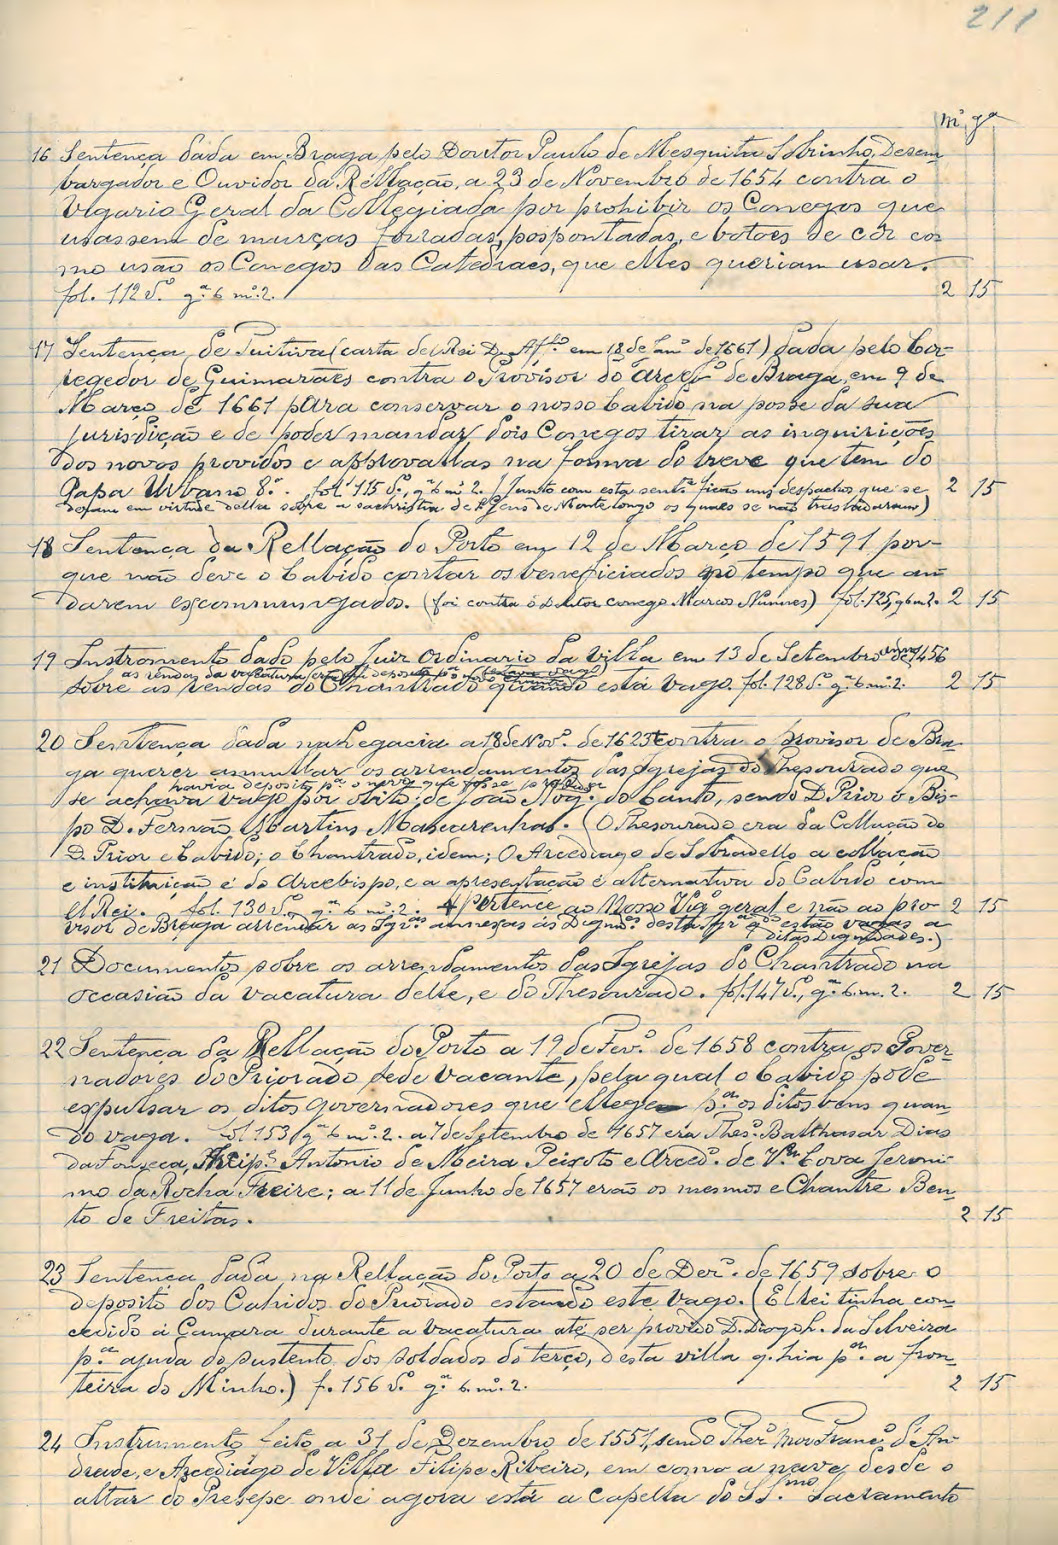 211
mº gª
16 Sentença dada em Braga pelo Doutor Paulo de Mesquita Sobrinho, Desem-
bargador e Ouvidor da Rellação, a 23 de Novembro de 1654 contra o
Vigario Geral da Collegiada por prohibir os Conegos que
usassem de murças forradas, pospontadas, e botões de côr co-
mo usão os Conegos das Catedraes, que elles queriam usar.
fol. 112 vº gª 6 mº 2. 2 15
17 Sentença de (carta del Rei D. Affº em 18 de Janº de 1661) dada pelo Cor-
regedor de Guimarães contra o Provisor do Arcebº de Braga, em 9 de
Março de 1661 para conservar o nosso Cabido na posse da sua
jurisdição e de poder mandar dois Conegos tirar as inquirições
dos novos providos e approvallas na forma do breve que tem do
Papa Urbano 8º. fol 115 vº, gª 6 mº 2. (Junto com esta sentª ficão uns despachos que se 2 15
deram em virtude della sobre a sachristia de S. Gens de Montelongo os quaes se não trasladaram)
18 Sentença da Rellação do Porto em 12 de Março de 1591 por-
que não deve o Cabido contar os beneficiados no tempo que an-
darem excommungados. (foi contra o Doutor conego Marcos Nunnes) fol. 125, g 6 m 2. 2 15
19 Instromento dado pelo Juiz Ordinario da Villa em 13 de Setembro de 1456
as rendas da vacatura
sobre as rendas do Chantrado quando está vago. fol. 128 vº. gª 6 mº 2. 2 15
20 Sentença dada na Legacia a 18 de Novº. de 1623 contra o Provisor de Bra-
ga querer annullar os arrendamentos das Igrejas do Thesourado que
havia deposito pª o novo que fosse
se achava vago por obito, de João Roiz. do Canto, sendo D. Prior o Bis-
po D. Fernão Martins Mascarenhas. (O Thesourado era da Collação do
D. Prior e Cabido; o Chantrado, idem; O Arcediago de Sobradello a collação
e instituição é do Arcebispo, e a apresentação é alternativa do Cabido com
El Rei. fol. 130 vº, gª 6 mº 2. Pertence ao Nosso Vigº geral e não ao pro- 2 15
visor de Braga arrendar as Igrªs annexas ás Dignidºs desta Igrª qdo estão vagas a
ditas Dignidades.)
21 Documentos sobre os arrendamentos das Igrejas do Chantrado na
occasião da vacatura delle, e do Thesourado. fol. 147 vº, gª 6. m. 2. 2 15
22 Sentença da Rellação do Porto a 19 de Fevº. de 1658 contra os Gover-
nadores do Priorado sede vacante, pela qual o Cabido pode
expulsar os ditos governadores que elleger pª os ditos bens quan-
do vaga. fol 153, gª 6 mº 2. a 7 de Setembro de 1657 era Thesº. Balthasar Dias
da Fonseca, Arcipe Antonio de Meira Peixoto e Arcedº. de Vª Cova Jeroni-
mo da Rocha Freire; a 11 de Junho de 1657 erão os mesmos e Chantre Ben-
to de Freitas. 2 15
23 Sentença dada na Rellação do Porto a 20 de Dezº. de 1659 sobre o
deposito dos Cahidos do Priorado estando este vago. (El Rei tinha con-
cedido á Camara durante a vacatura até ser provido D. Diogo L. da Silveira
pª. ajuda do sustento dos soldados do terço, desta villa q. hia pª. a fron-
teira do Minho.) f. 156 vº. gª 6. mº. 2. 2 15
24 Instrumento feito a 31 de Dezembro de 1551, sendo Thezº Mor Francº d'An-
drade, e Arcediago de Villa Filipe Ribeiro, em como a nave desde o
altar do Presepe onde agora está a Capella do SSmo. Sacramento